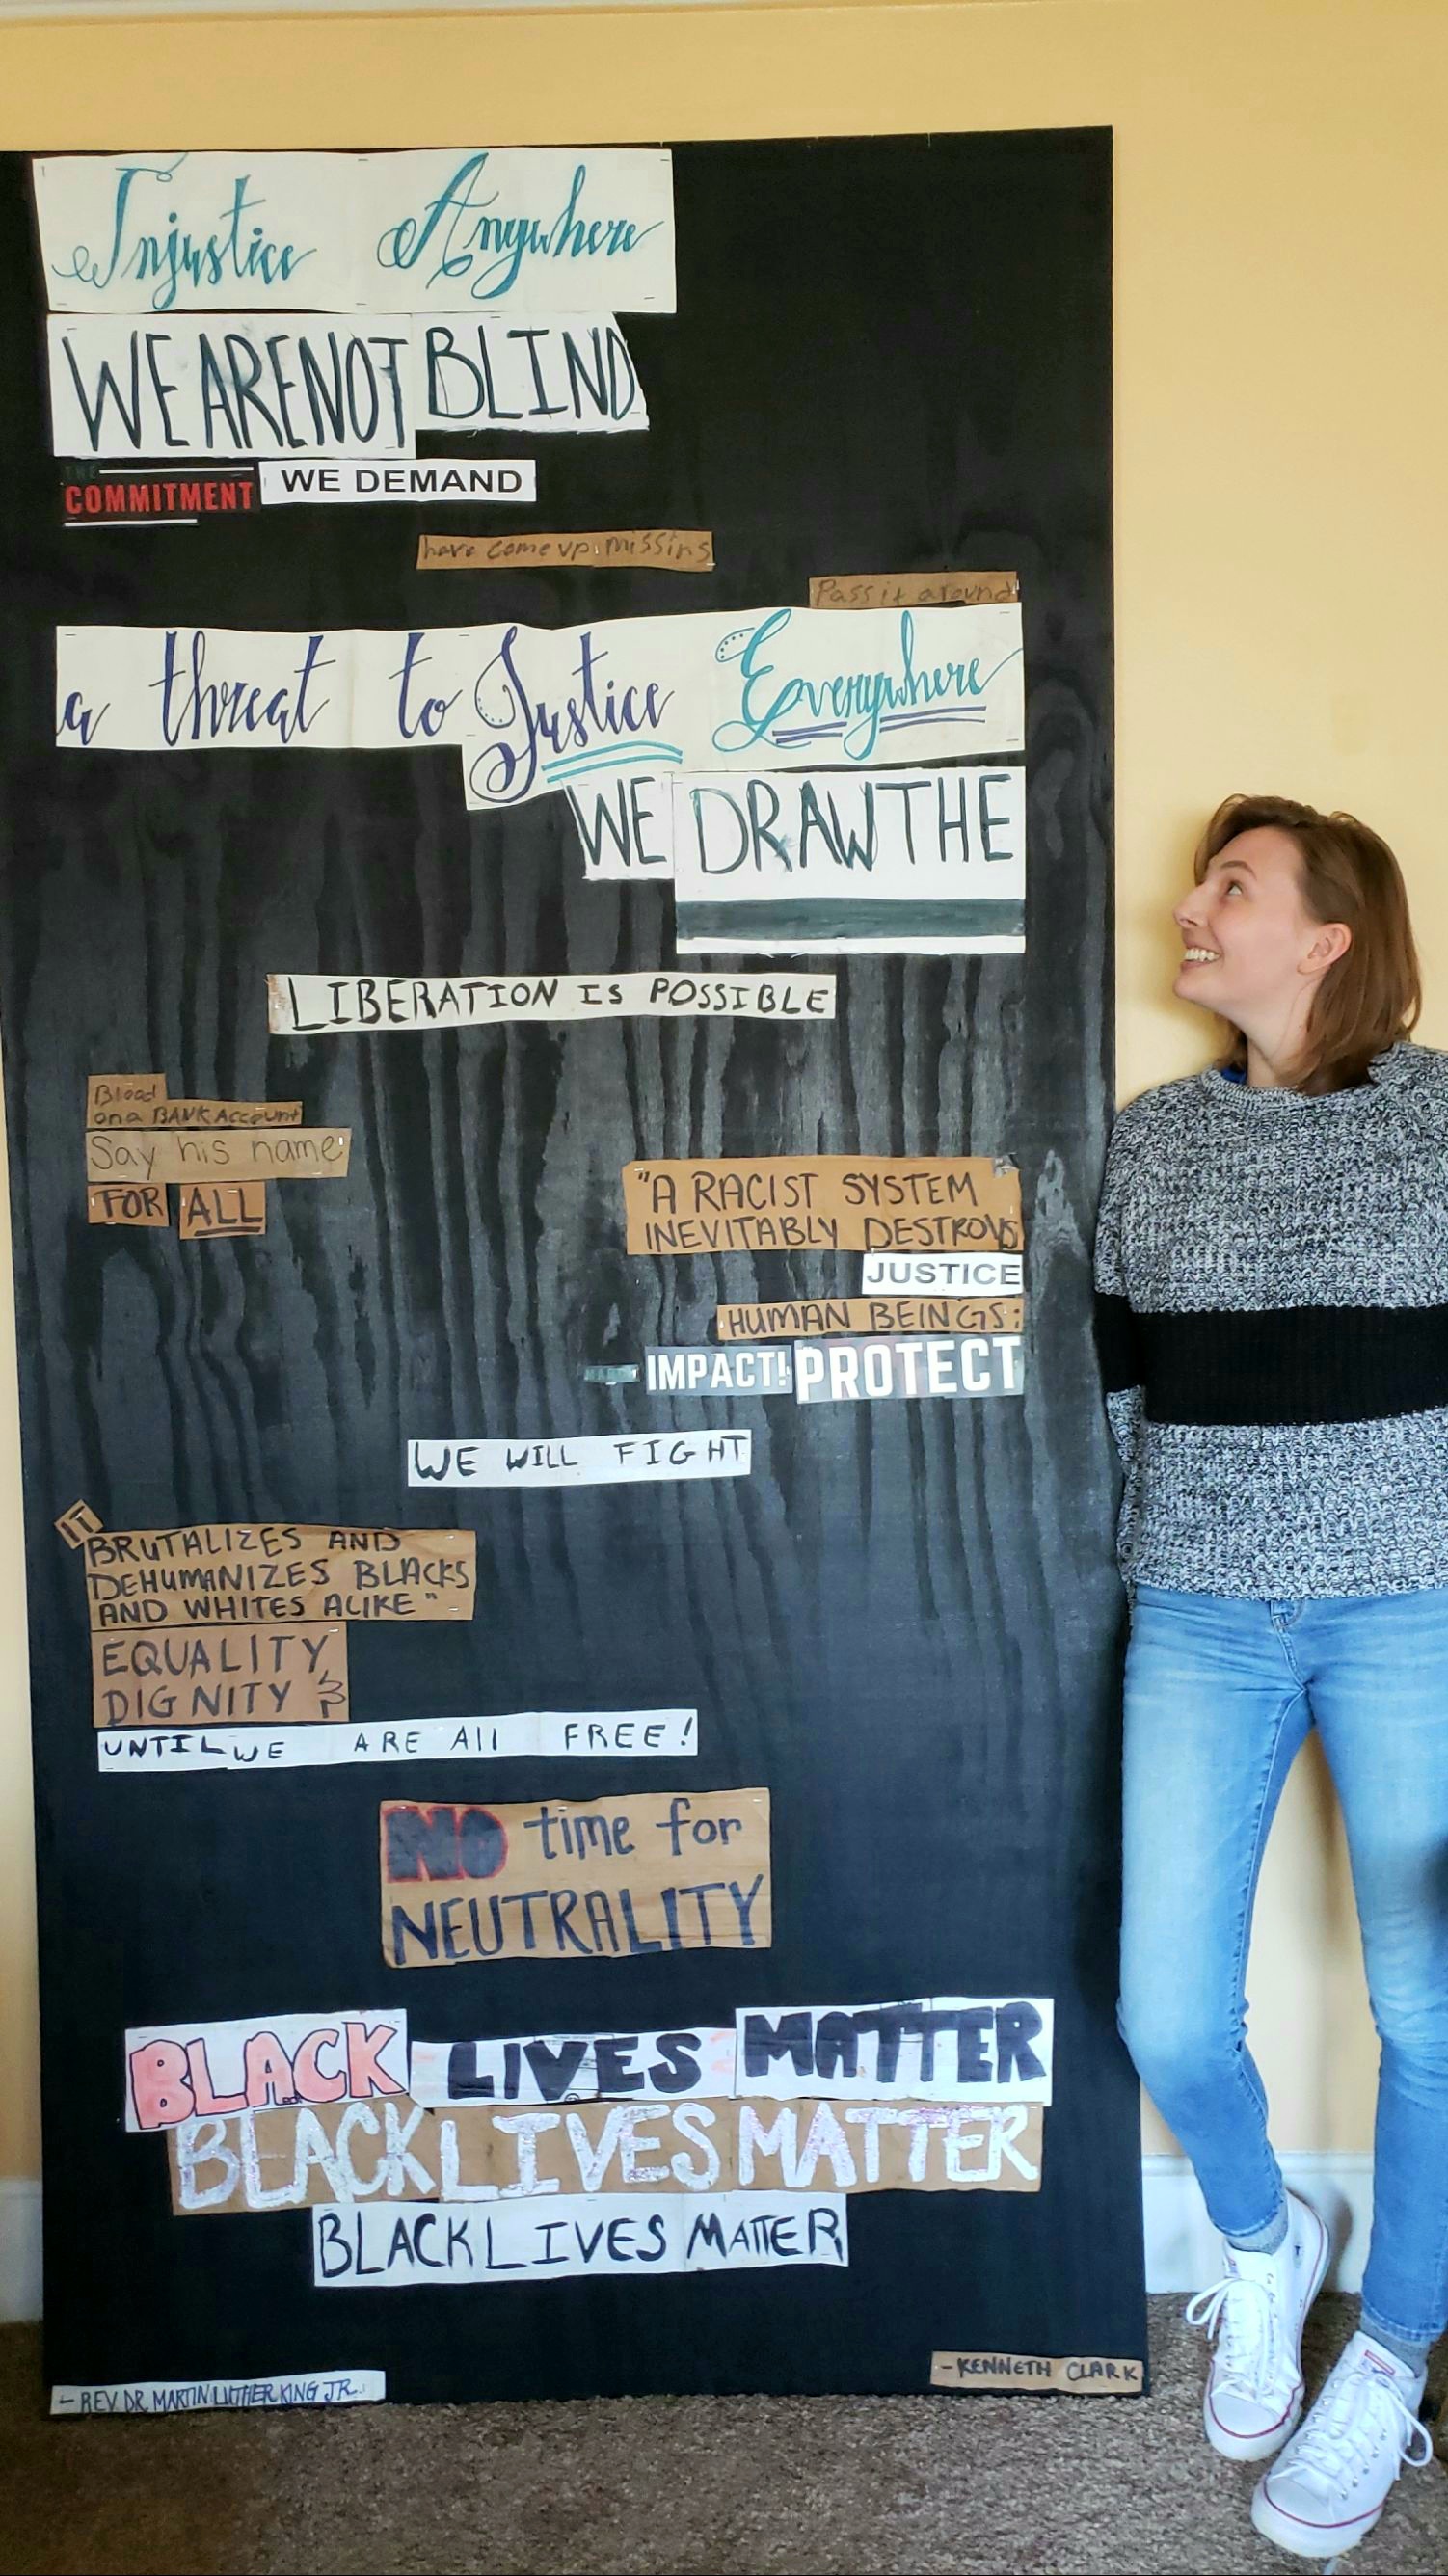 Injustice Anywhere
WE ARE NOT BLIND
THE
COMMITMENT WE DEMAND
have come up missing
Pass it around
a threat to Justice Everywhere
WE DRAW THE
LIBERATION IS POSSIBLE
Blood
on a BANK Account
Say his name
FOR ALL
"A RACIST SYSTEM
INEVITABLY DESTROYS
JUSTICE
HUMAN BEINGS;
IMPACT! PROTECT
WE WILL FIGHT
IT
BRUTALIZES AND
DEHUMANIZES BLACKS
AND WHITES ALIKE"
EQUALITY,
DIGNITY &
UNTIL WE ARE All FREE!
NO time for
NEUTRALITY
BLACK LIVES MATTER
BLACK LIVES MATTER
BLACK LIVES MATTER
- KENNETH CLARK
- REV. DR. MARTIN LUTHER KING JR.